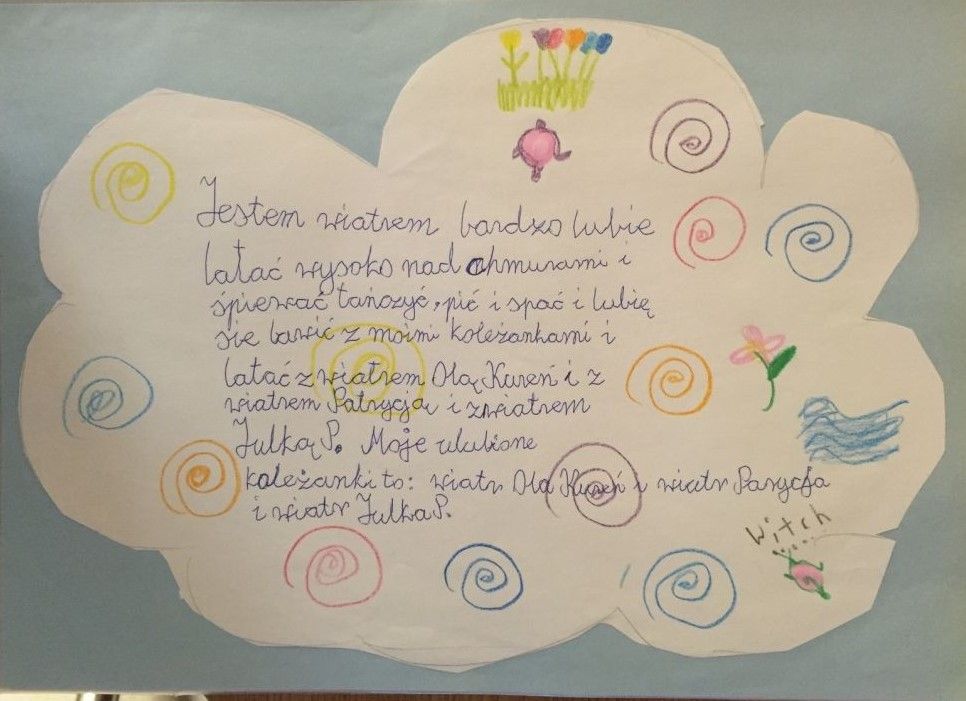 Jestem wiatrem bardzo lubie
latać wysoko nad chmurami i
śpiewać tańczyć, pić i spać i lubię
się bawić z moimi koleżankami i
latać z wiatrem Olą Kureń i z
wiatrem Patrycją i z wiatrem
Julką P. Moje ulubione
koleżanki to: wiatr Ola Kureń i wiatr Parycja
i wiatr Julka P.
Witch